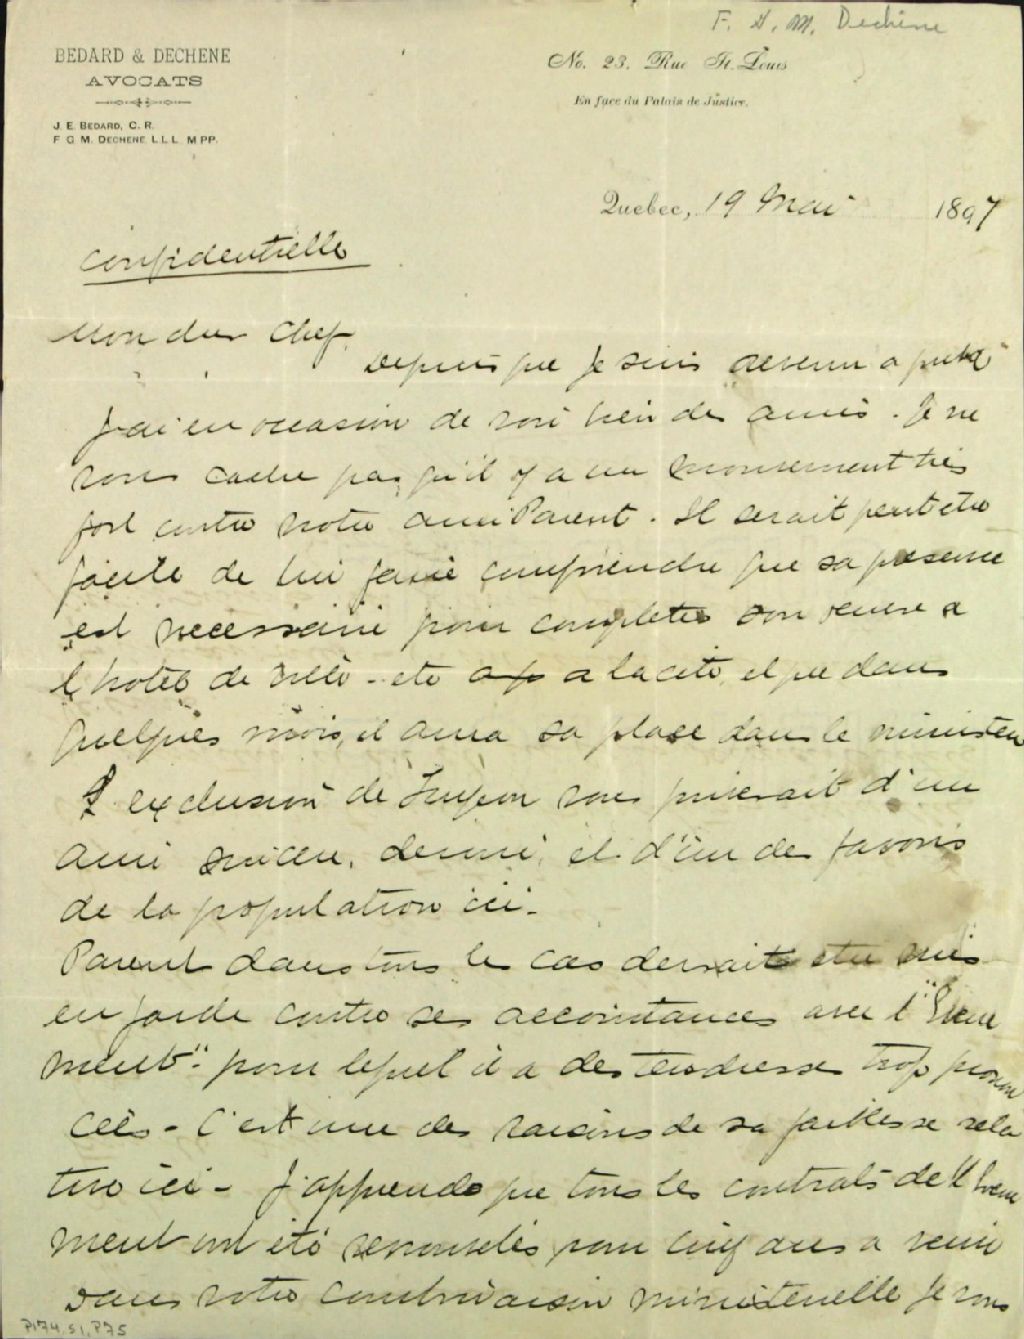 F. G. M. Dechène
BEDARD & DECHENE
AVOCATS
No. 23, Rue St. Louis
En face du Palais de Justice.
J. E. BEDARD, C. R.
F G M. DECHENE L.L.L. M PP.
Quebec, 19 Mai 1897
Confidentielle
Mon cher Chef,
Depuis que je suis devenu a
J'ai eu occasion de voir bien des amis. Je ne
vous cache pas qu'il y a un mouvement très
fort contre notre ami Parent. Il serait peut etre
facile de lui faire comprendre que sa presence
est necessaire pour completer son oeuvre a
l'hotel de ville - etc a la cité, et que dans
quelques mois, il aura sa place dans le ministere
L'exclusion de Turgeon vous priverait d'un
ami sincere, devoué, et d'un des favoris
de la population ici -
Parent dans tous les cas devrait etre mis
en garde contre ses accointances avec l'"Evene
ment" pour lequel il a des tendresses trop pronon
cées - C'est une des raisons de sa faiblesse rela
tive ici - J'apprends que tous les contrats de l'Evene
ment ont été renouvelés pour cinq ans a venir
Dans votre combinaison ministerielle je vous
P174, S1, P75